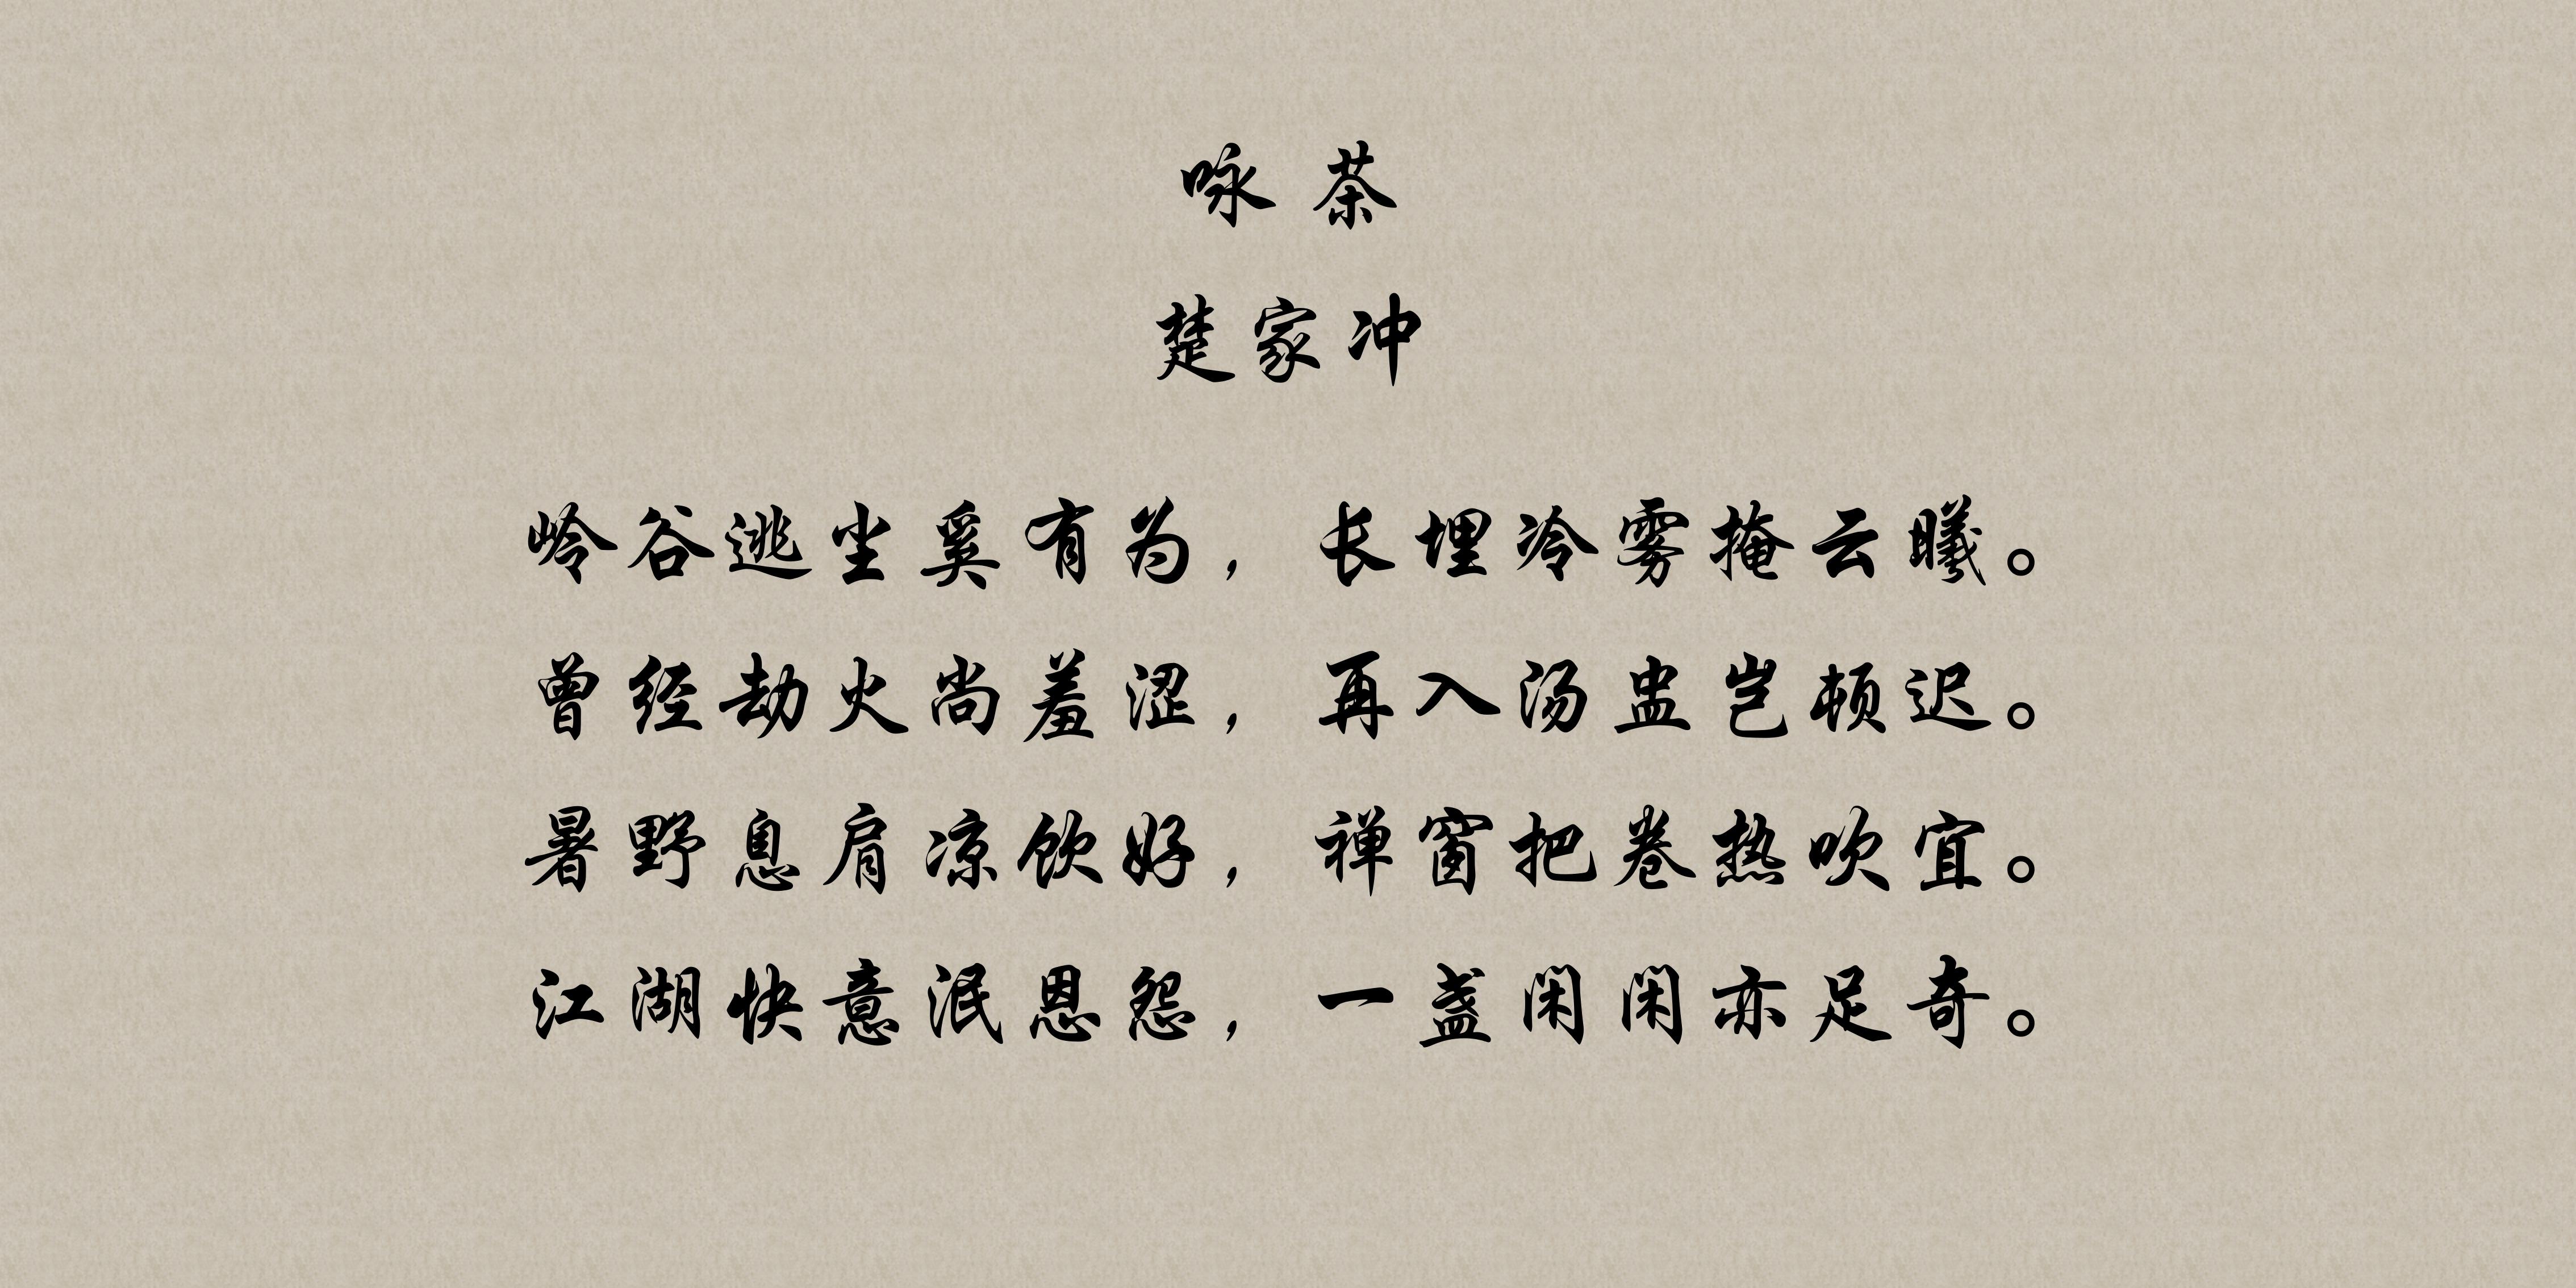 咏茶
楚家冲
岭谷逃尘奚有为，长埋冷雾掩云曦。
曾经劫火尚羞涩，再入汤盅岂顿迟。
暑野息肩凉饮好，禅窗把卷热吹宜。
江湖快意泯恩怨，一盏闲闲亦足奇。